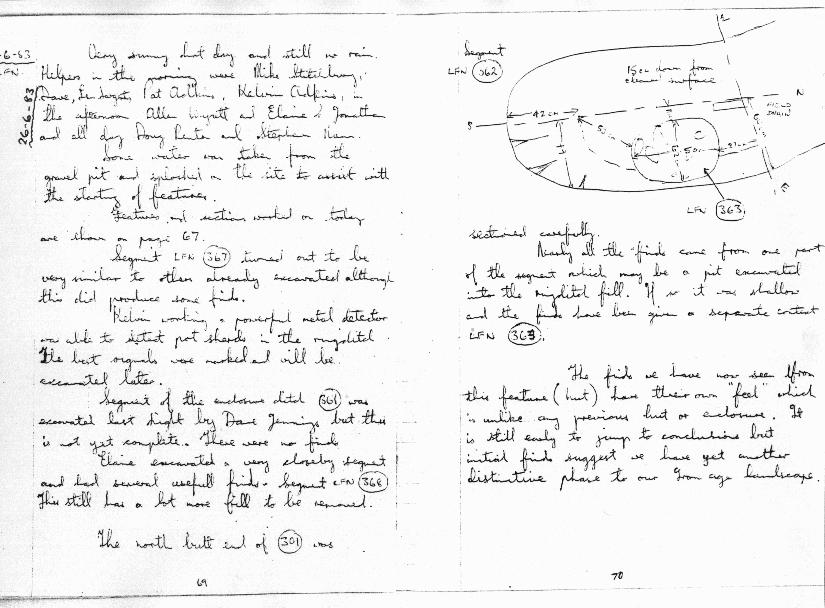 26-6-83
LFN
Very sunny hot day and still no rain.
Helpers in the morning were Mike
Dave, Pat Adkins, Kelvin Adkins, in
the afternoon Allen Wyatt and Elaine & Jonathan
and all day Doug and Stephen
Some water was taken from the
gravel pit and splashed on the site to assist with
the starting of features.
Features and section worked on today
are shown on page 67.
Segment LFN 367 turned out to be
very similar to others already excavated although
this did produce some finds.
Kelvin working a powerful metal detector
was able to detect pot sherds in the ringditch.
The best signals were marked and will be
excavated later.
Segment of the enclosure ditch 361 was
excavated last night by Dave Jennings but this
is not yet complete. There were no finds
Elaine excavated a very closeby segment
and had several usefull finds. Segment LFN 368
This still has a lot more fill to be removed.
The north butt end of 301 was
69
Segment
LFN 362
15cm down from
cleaned surface
N
S
42cm
FIELD
DRAIN
50cm
LFN 363
sectioned carefully.
Nearly all the finds came from one part
of the segment which may be a pit excavated
into the ringditch fill. If so it was shallow
and the finds have been given a separate context
LFN 363.
The finds we have now seen from
this feature (hut) have their own "feel" which
is unlike any previous hut or enclosure. It
is still early to jump to conclusions but
initial finds suggest we have yet another
distinctive phase to our Iron age landscape.
70